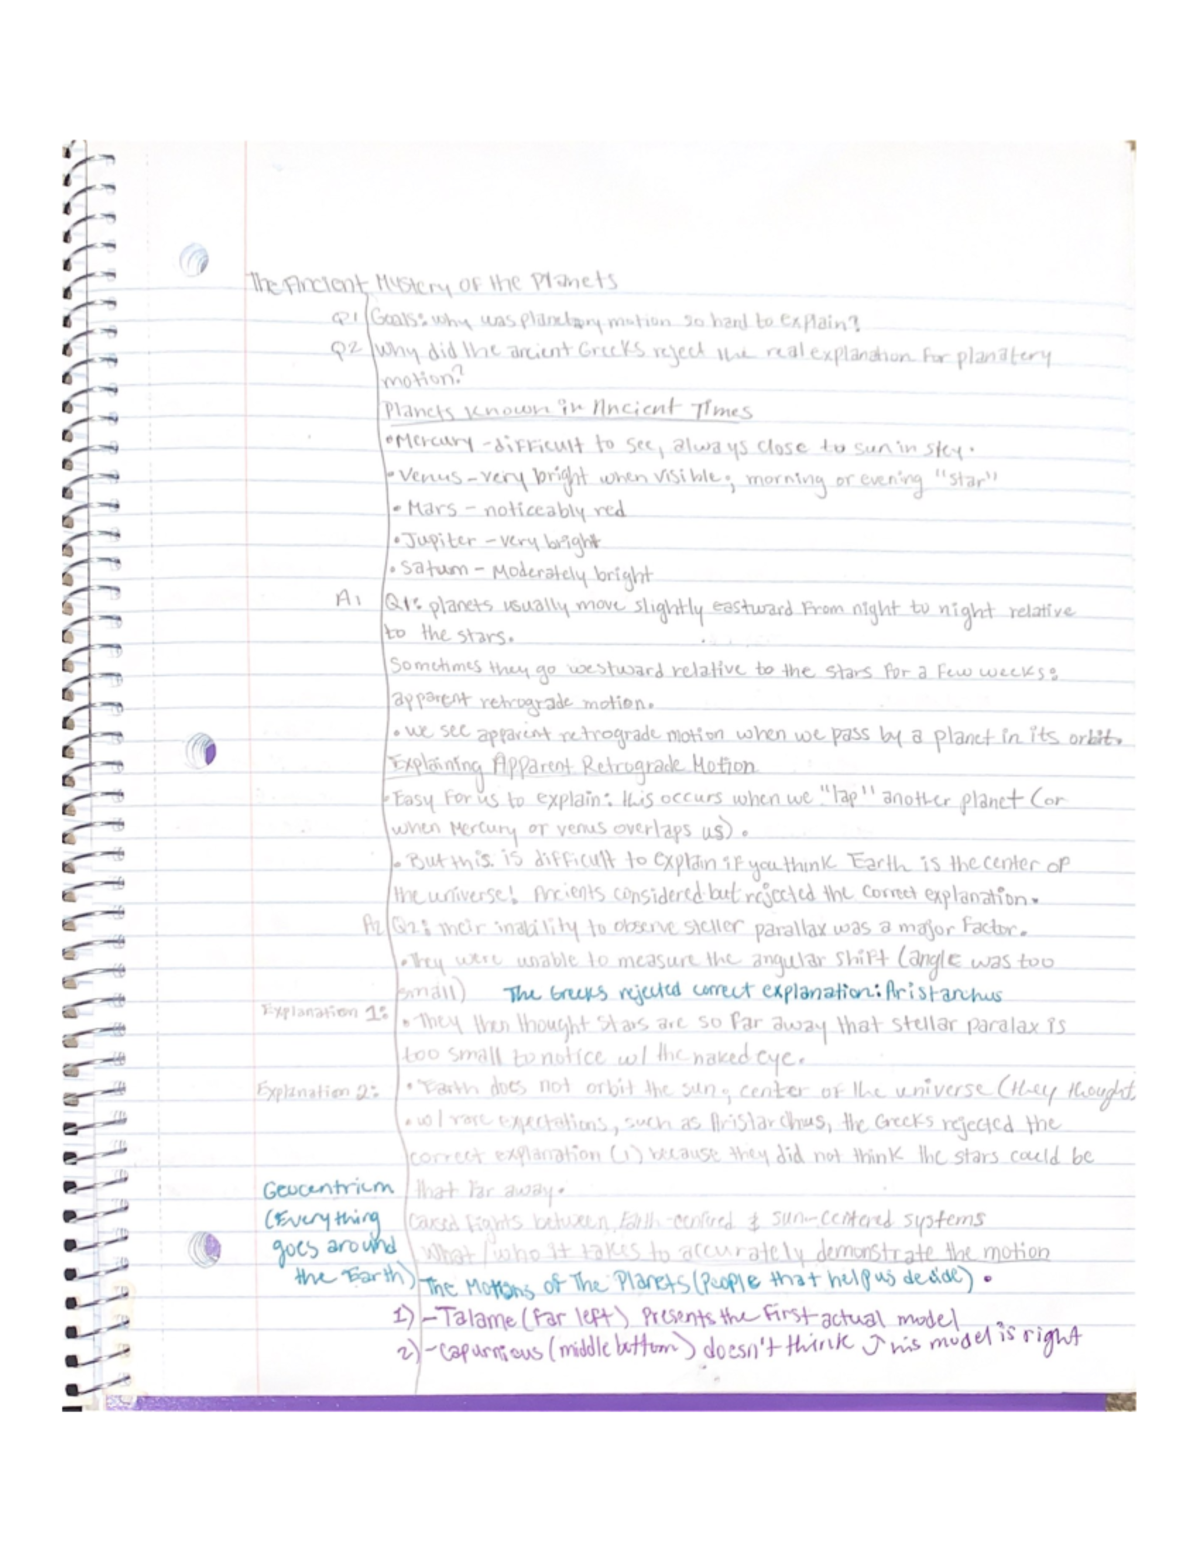 The Ancient Mystery of the Planets
Q1 Goals: why was planetary motion so hard to explain?
Q2 Why did the ancient Greeks reject the real explanation for planatery
motion?
Planets Known in Ancient Times
•Mercury - difficult to see, always close to sun in sky.
•Venus - very bright when visible; morning or evening "star"
•Mars - noticeably red
•Jupiter - very bright
•Saturn - Moderately bright
A1 Q1: planets usually move slightly eastward from night to night relative
to the stars.
Sometimes they go westward relative to the stars for a few weeks:
apparent retrograde motion.
•we see apparent retrograde motion when we pass by a planet in its orbit.
Explaining Apparent Retrograde Motion
•Easy for us to explain: this occurs when we "lap" another planet (or
when Mercury or venus overlaps us).
•But this is difficult to explain if you think Earth is the center of
the universe! Ancients considered but rejected the correct explanation.
A2 Q2: their inability to observe steller parallax was a major factor.
•They were unable to measure the angular shift (angle was too
small) The Greeks rejected correct explanation: Aristarchus
Explanation 1: •They then thought stars are so far away that stellar paralax is
too small to notice w/ the naked eye.
Explanation 2: •Earth does not orbit the sun; center of the universe (they thought
•w/ rare expectations, such as Aristarchus, the Greeks rejected the
correct explanation (1) because they did not think the stars could be
Geocentrism that far away.
(Everything caused fights between Earth-centered & sun-centered systems
goes around What / who it takes to accurately demonstrate the motion
the Earth) The Motions of The Planets (People that help us decide).
1) - Talame (far left) Presents the first actual model
2) - Capurnious (middle bottom) doesn't think his model is right